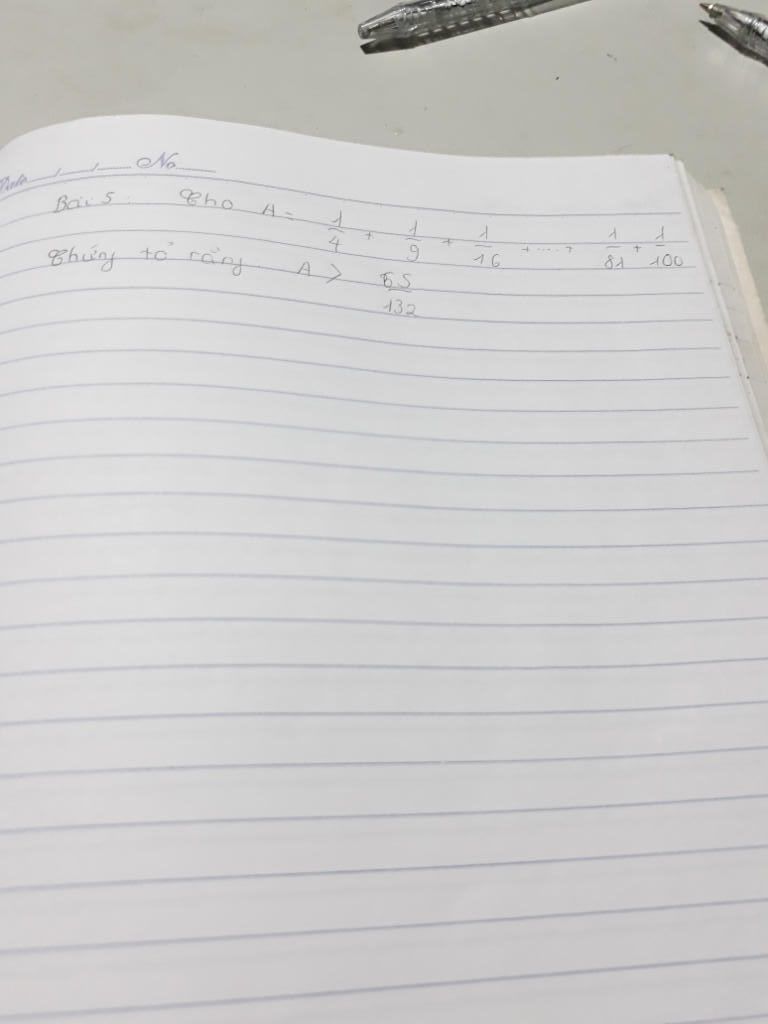 Date / / No
Bài 5: Cho A = 1/4 + 1/9 + 1/16 + .... + 1/81 + 1/100
Chứng tỏ rằng A > 65/132